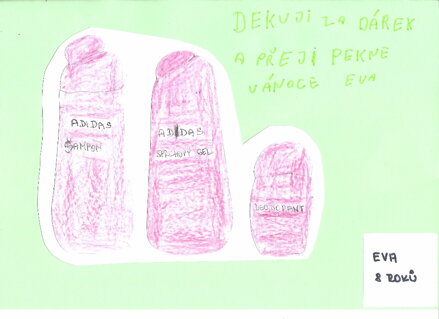 DEKUJI ZA DÁREK
A PŘEJI PEKNE
VÁNOCE EVA
ADIDAS
ŠAMPON
ADIDAS
SPRCHOVÝ GEL
DEODORANT
EVA
8 ROKŮ